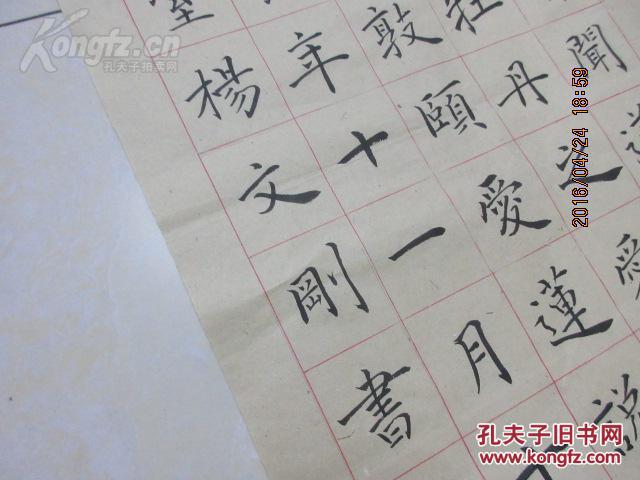 聞
牡丹之愛
敦頤愛蓮說
年十一月
楊文剛書
2016/04/24 18:59
Kongfz.com
孔夫子拍卖网
孔夫子旧书网
www.kongfz.com